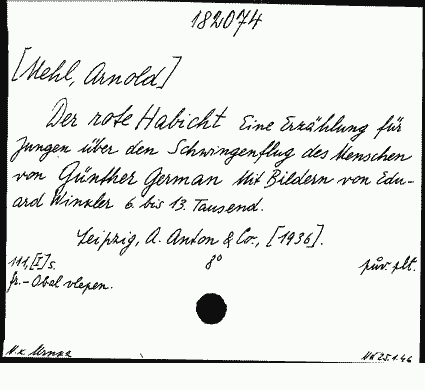 182074
[Mehl, Arnold]
Der rote Habicht Eine Erzählung für
Jungen über den Schwingenflug des Menschen
von Günther German Mit Bildern von Edu-
ard Winkler 6. bis 13. Tausend.
Leipzig, A. Anton & Co., [1936].
111, [I] s. 8° pův. plt.
fr.-Obal vlepen.
25.1.46